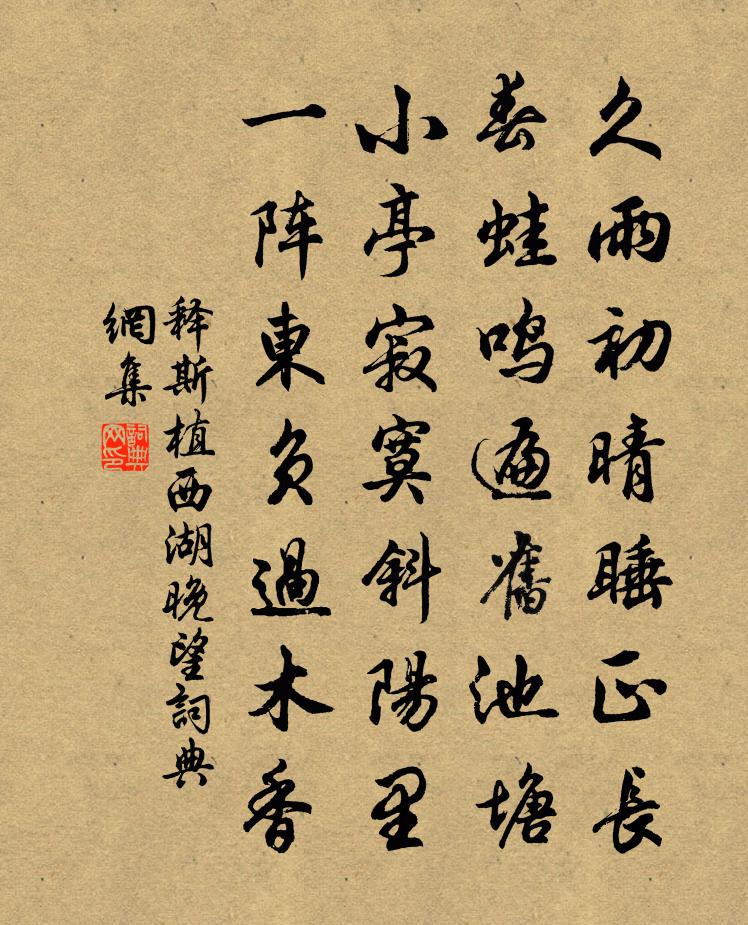 久雨初晴睡正長
春蛙鳴遍舊池塘
小亭寂寞斜陽里
一阵東風過木香
释斯植西湖晚望詞典
網集
詞典
网印